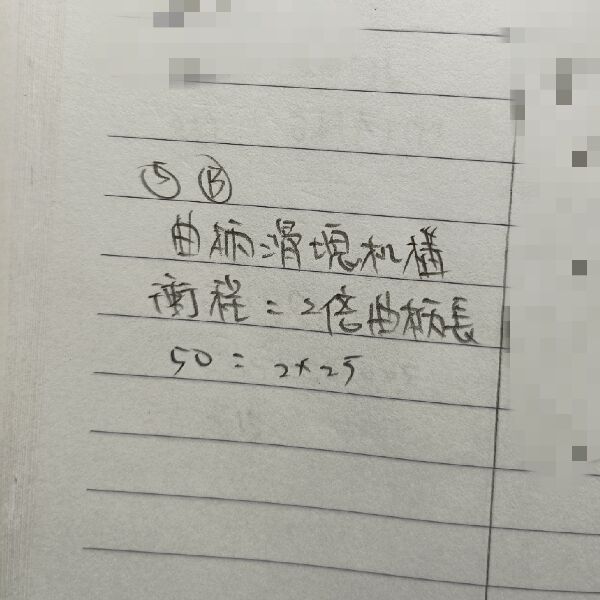 ⑤ Ⓑ
曲柄滑塊机構
衝程=2倍曲柄長
50=2×25